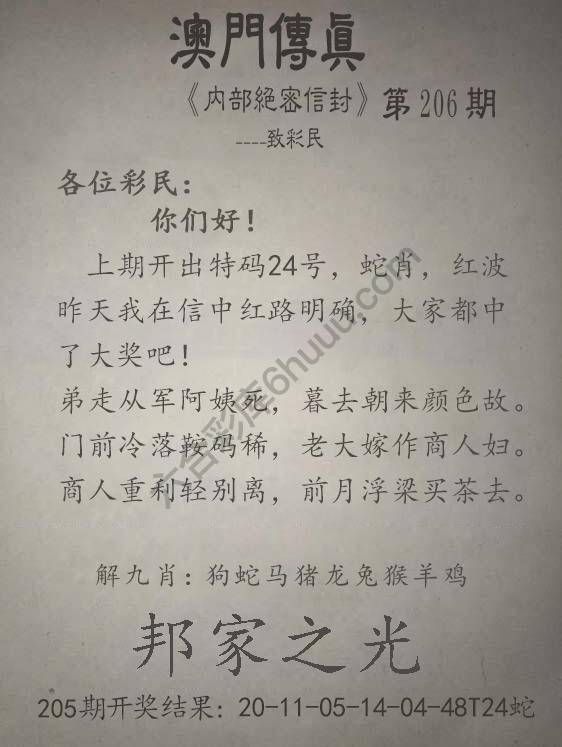 澳門傳眞
《内部絕密信封》第206期
----致彩民
各位彩民：
你们好！
上期开出特码24号，蛇肖，红波
昨天我在信中红路明确，大家都中
了大奖吧！
弟走从军阿姨死，暮去朝来颜色故。
门前冷落鞍码稀，老大嫁作商人妇。
商人重利轻别离，前月浮梁买茶去。
解九肖：狗蛇马猪龙兔猴羊鸡
邦家之光
205期开奖结果：20-11-05-14-04-48T24蛇
六合彩库6huuu.com